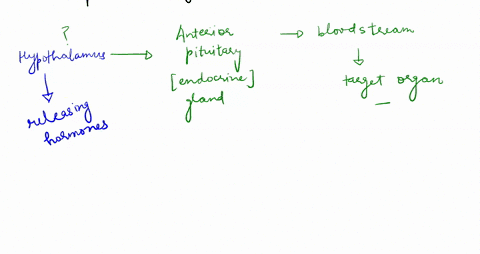 ?
Hypothalamus
releasing
hormones
Anterior
pituitary
[endocrine]
gland
bloodstream
target organ